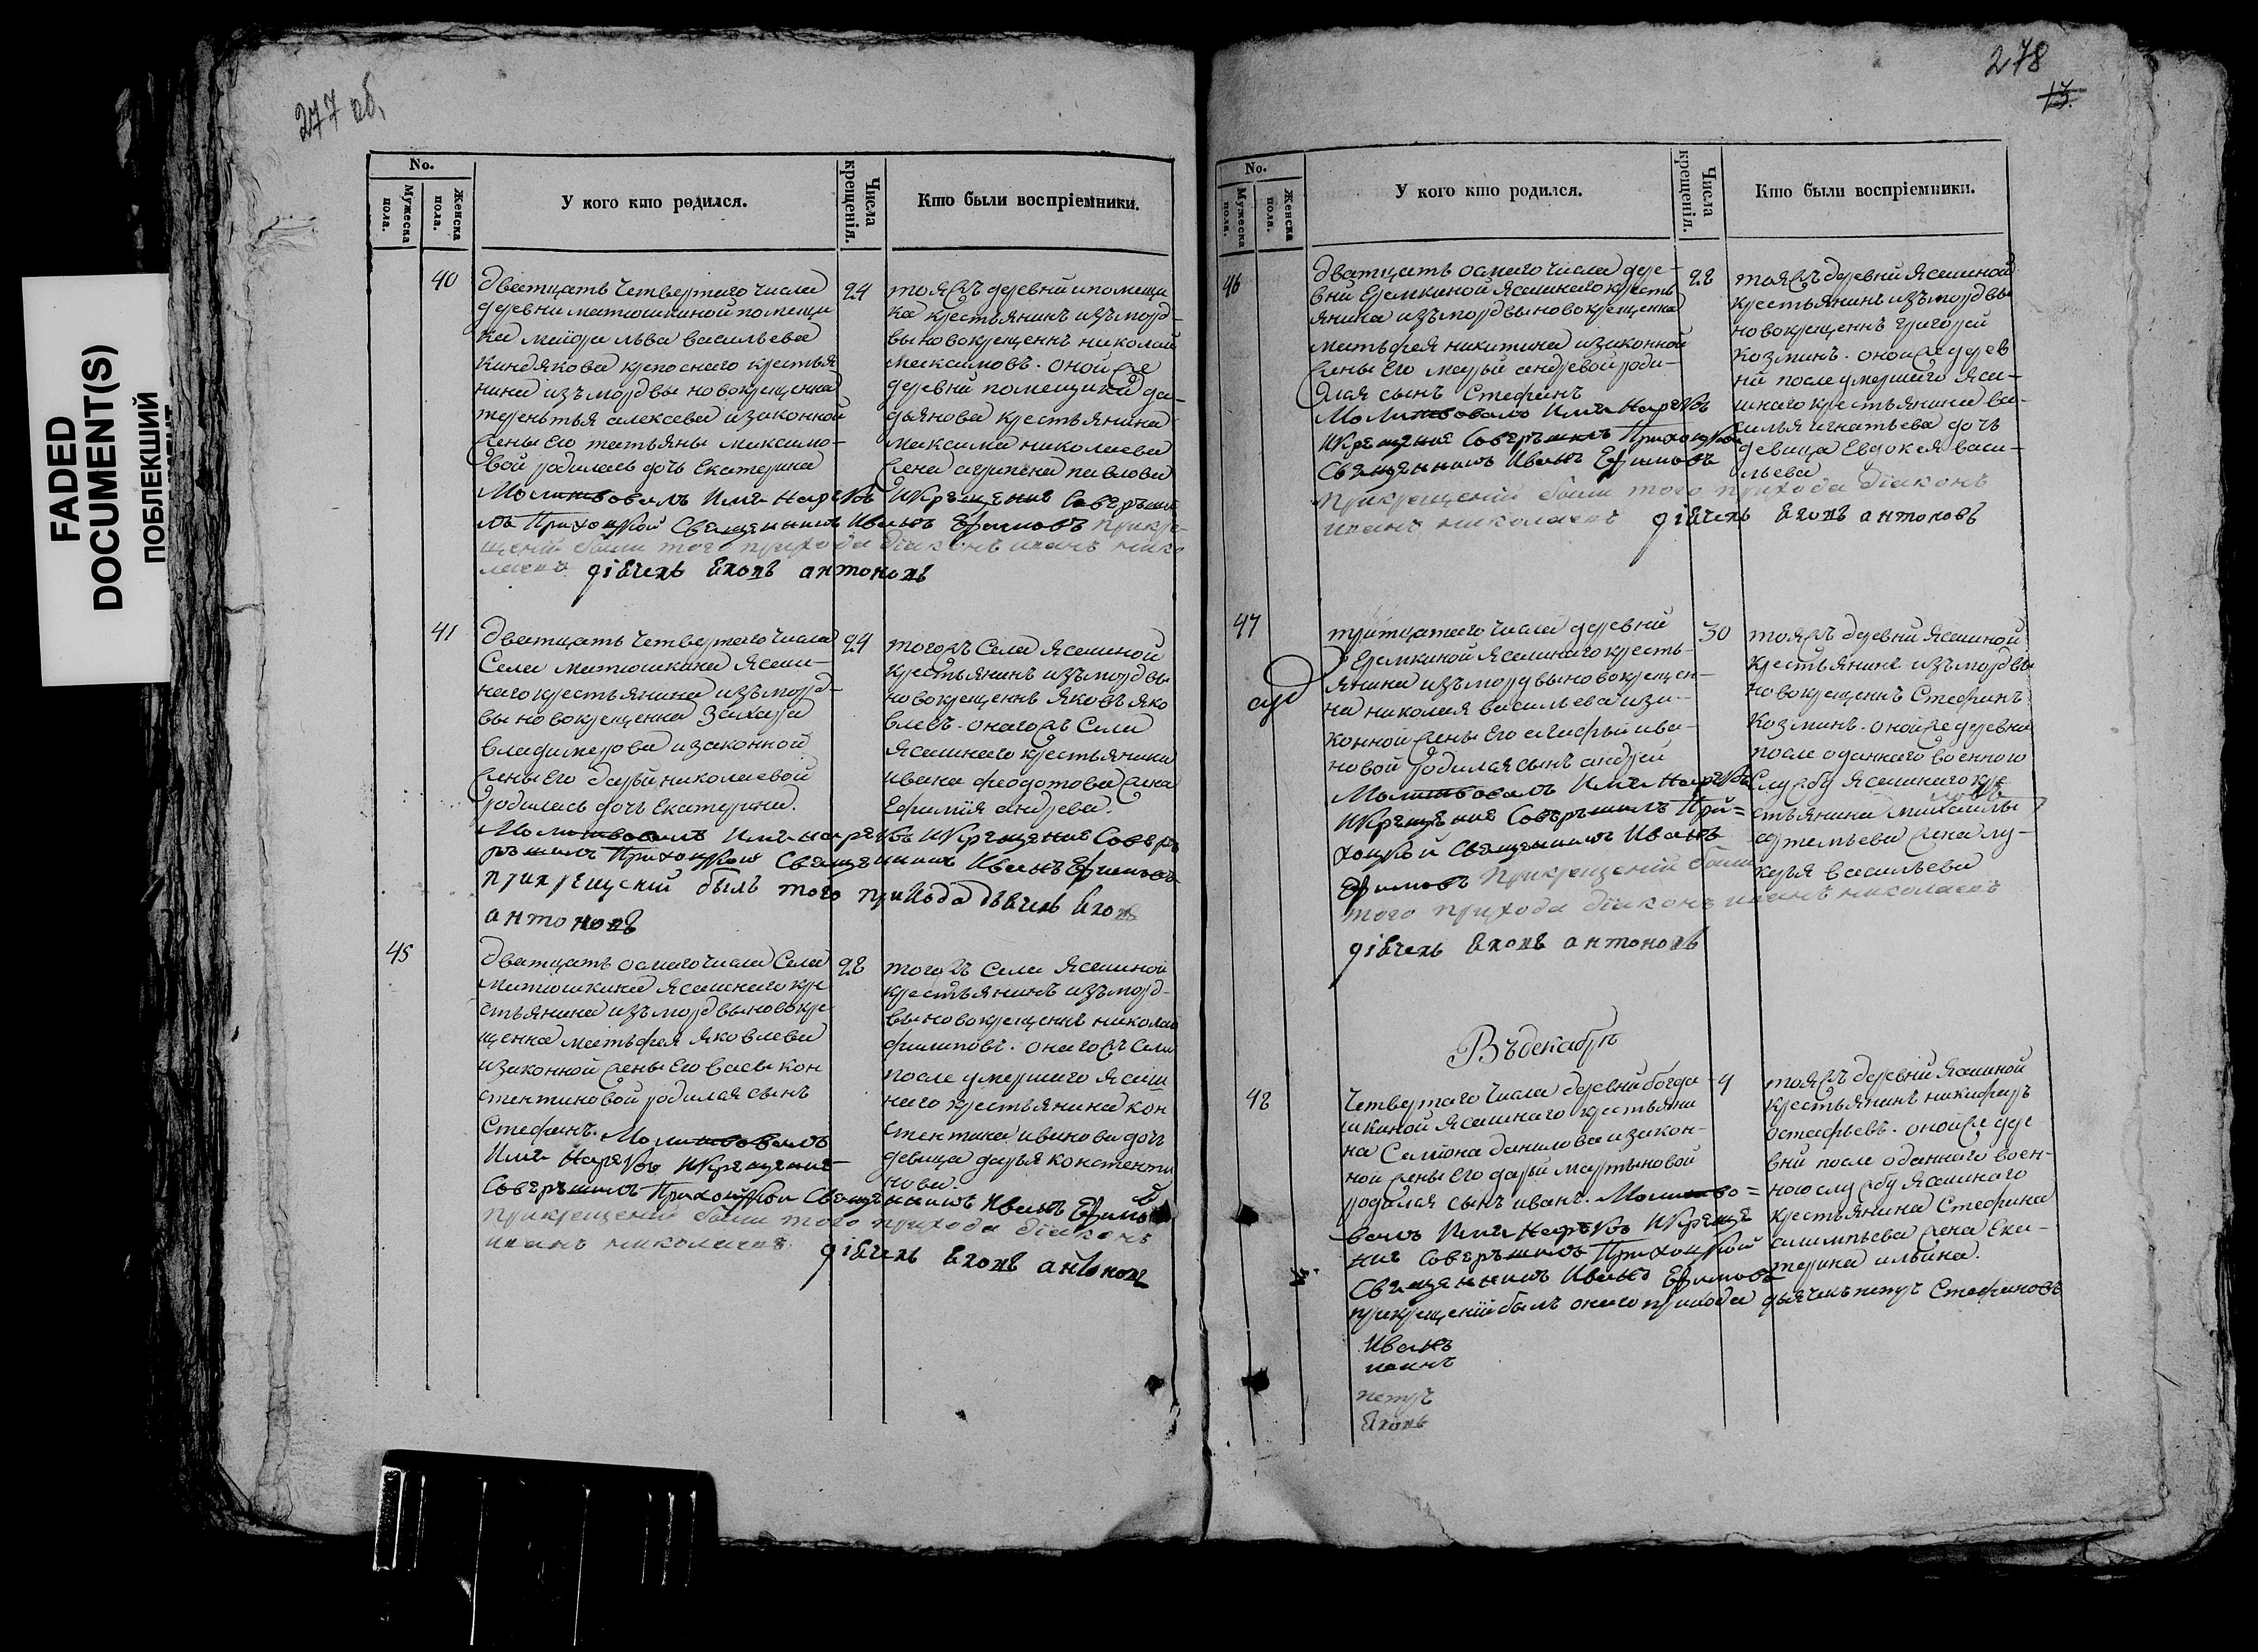 FADED
DOCUMENT(S)
ПОБЛЕКШИЙ
277 об.
No.
Мужеска пола.
Женска пола.
У кого кто родился.
Числа крещенія.
Кто были воспріемники.
40
дватцать четвертаго числа
деревни матюшкиной помещи
ка маиора льва васильева
киндякова крепоснаго крестья
нина изъ мордвы новокрещенна
терентья алексева изаконной
жены Его татьяны максимо-
вой родилась дочь Екатерина
Молитвовалъ Имя Нарѣкъ И Крещение Соверъши
лъ Приходской Священникъ Иванъ Ефимовъ прикре-
щеніи были того прихода діаконъ иванъ нико
лаевъ дiячекъ яковъ антоновъ
24
тояжъ деревни ипомещи
ка крестьянинъ изъ морд-
вы новокрещеннъ николай
максимовъ. оной же
деревни помещика да-
дьянова крестьянина
максима николаева
жена агрипена павлова
41
дватцать четвертаго числа
Села матюшкина ясаш-
наго крестьянина изъ морд-
вы новокрещенна захара
владимерова изаконной
жены Его дарьи николаевой
родилась дочь Екатерина.
Молитвовалъ Имя нарекъ И Крещение Совер
ршилъ Приходской Священникъ Иванъ Ефимовъ
прикрещеніи былъ того прихода дьячекъ яковъ
антоновъ
24
тогожъ Села ясашной
крестьянинъ изъ мордвы
новокрещеннъ яковъ яко
влевъ. онагожъ Села
ясашнаго крестьянина
ивана феодотова жена
Ефимия андрева.
45
дватцать осмаго числа Села
матюшкина ясашнаго кре
стьянина изъ мордвы новокре
щенна матьфея яковлева
изаконной жены Его васы кон
стентиновой родился сынъ
Стефанъ. Молитвовалъ
Имя Нарекъ И Крещение
Совершилъ Приходской Священникъ Иванъ Ефимовъ
прикрещеніи были того прихода діаконъ
иванъ николаевъ дiячекъ яковъ антоновъ
28
тогожъ Села ясашной
крестьянинъ изъ морд-
вы новокрещеннъ николай
филиповъ. онагожъ Села
после умершаго ясаш
наго крестьянина кон
стентина иванова дочь
девица дарья констенти
нова.
278
13.
No.
Мужеска пола.
Женска пола.
У кого кто родился.
Числа крещенія.
Кто были воспріемники.
46
дватцать осмаго числа дере-
вни Еремкиной ясашнаго кресть
янина изъ мордвы новокрещенна
матьфея никитина изаконной
жены Его марьи андревой роди-
лся сынъ Стефанъ
Молитвовалъ Имя Нарекъ
И Крещение Совершилъ Приходской
Священникъ Иванъ Ефимовъ
прикрещеніи были того прихода діаконъ
иванъ николаевъ дiячекъ яковъ антоновъ
28
тояжъ деревни ясашной
крестьянинъ изъ мордвы
новокрещеннъ григорей
козминъ. оной же дерев
ни после умершаго яса-
шнаго крестьянина ва-
силья игнатьева дочь
девица Евдокея васи-
льева
47
тритцатаго числа деревни
Еремкиной ясашнаго кресть-
янина изъ мордвы новокрещен-
на николая васильева иза-
конной жены Его агафьи ива-
новой родился сынъ андрей
Молитвовалъ Имя Нарекъ
И Крещение Совершилъ При=
ходской Священникъ Иванъ
Ефимовъ прикрещеніи были
того прихода діаконъ иванъ николаевъ
дiячекъ яковъ антоновъ
30
тояжъ деревни ясашной
крестьянинъ изъ мордвы
новокрещеннъ Стефанъ
козминъ. оной же деревни
после оданнаго военного
Службу ясашнаго кре
стьянина михаилы
артемьева жена лу-
керья васильева
Въ декабрѣ
48
Четвертаго числа деревни богда
шкиной ясашнаго крестьяни
на Семiона данилова изакон-
ной жены Его дарьи мартыновой
родился сынъ иванъ. Молитво=
валъ Имя Нарекъ И Креще
ние Совершилъ Приходской
Священникъ Иванъ Ефимовъ
прикрещеніи былъ онаго прихода дьячекъ петръ Стефановъ
4
тояжъ деревни ясашной
крестьянинъ никифоръ
остафьевъ. оной же дере
вни после оданнаго воен-
ною службу ясашнаго
крестьянина Стефана
алимпьева жена Ека-
терина ильина.
Иванъ
иванъ
петръ
яковъ